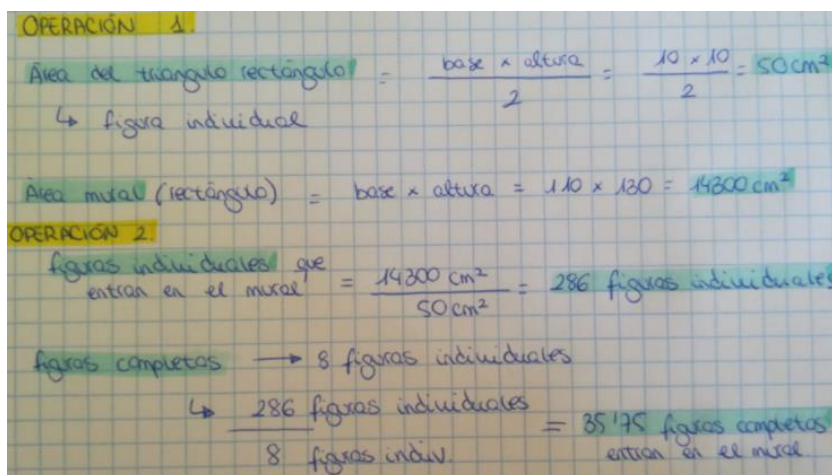 OPERACIÓN 1.
Área del triángulo rectángulo = base x altura / 2 = 10 x 10 / 2 = 50 cm²
↳ figura individual
Área mural (rectángulo) = base x altura = 110 x 130 = 14300 cm²
OPERACIÓN 2.
figuras individuales que
entran en el mural = 14300 cm² / 50 cm² = 286 figuras individuales
figuras completas → 8 figuras individuales
↳ 286 figuras individuales / 8 figuras indiv. = 35'75 figuras completas
entran en el mural